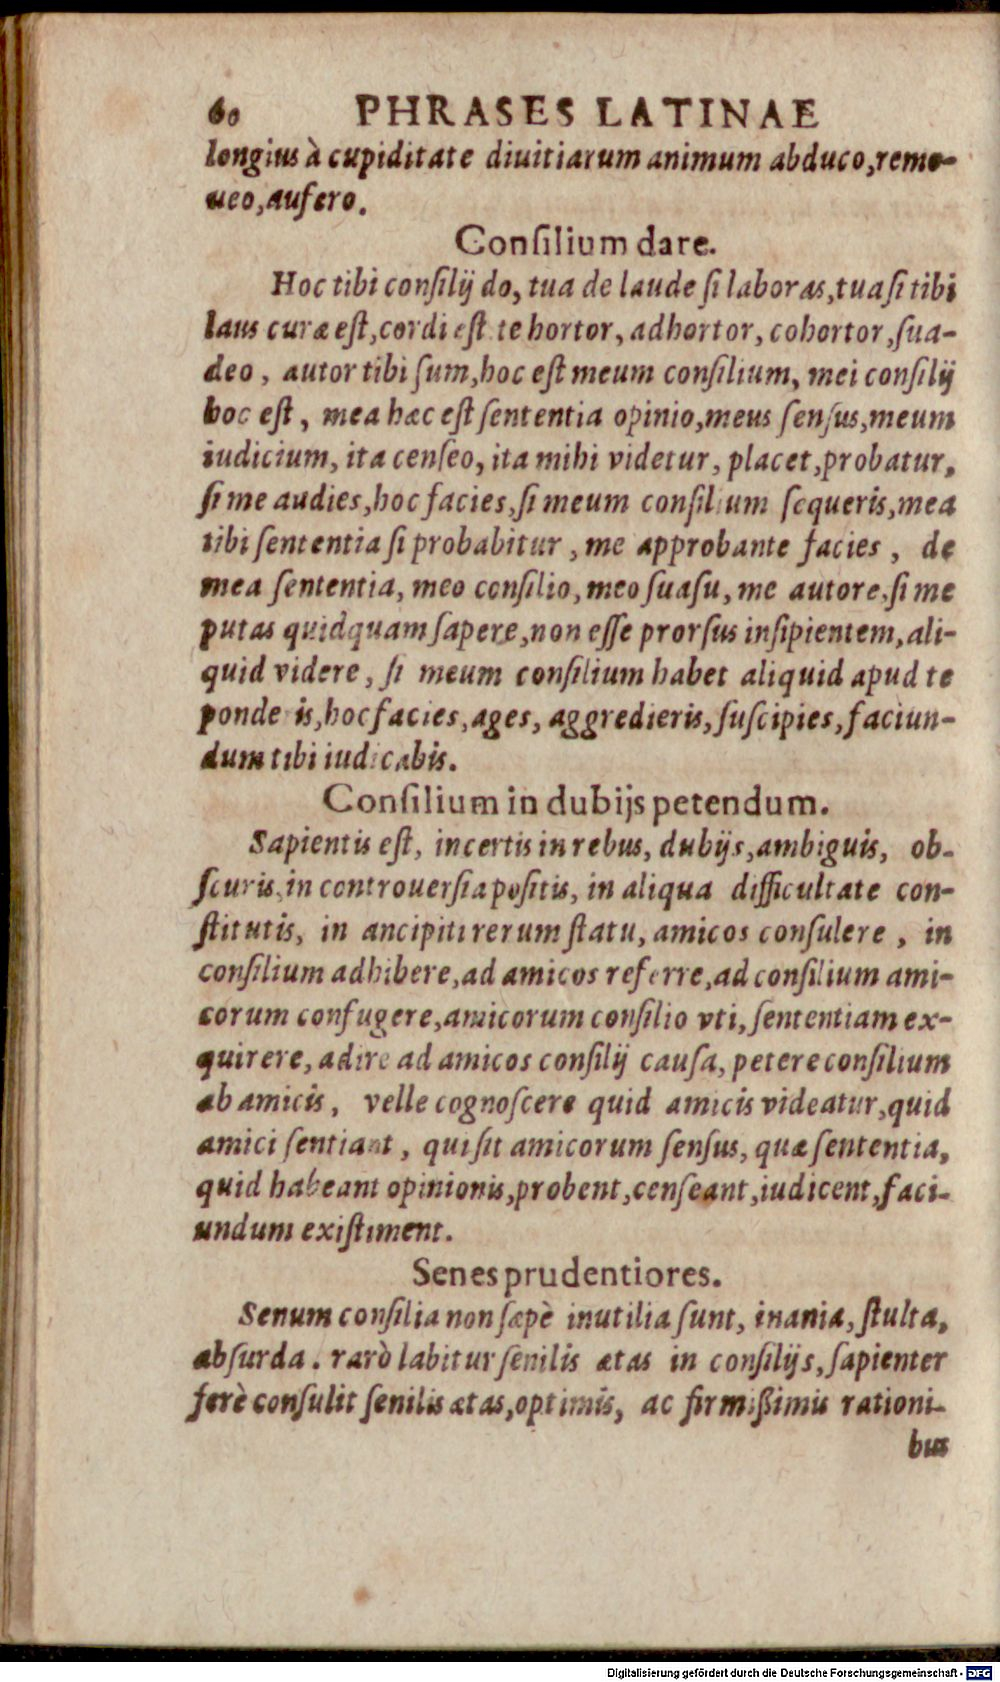 60 PHRASES LATINAE
longius à cupiditate diuitiarum animum abduco, remo-
ueo, aufero.
Conſilium dare.
Hoc tibi conſilij do, tua de laude ſi laboras, tua ſi tibi
laus curæ eſt, cordi eſt te hortor, adhortor, cohortor, ſua-
deo, autor tibi ſum, hoc eſt meum conſilium, mei conſilij
hoc eſt, mea hæc eſt ſententia opinio, meus ſenſus, meum
iudicium, ita cenſeo, ita mihi videtur, placet, probatur,
ſi me audies, hoc facies, ſi meum conſilium ſequeris, mea
tibi ſententia ſi probabitur, me approbante facies, de
mea ſententia, meo conſilio, meo ſuaſu, me autore, ſi me
putas quidquam ſapere, non eſſe prorſus inſipientem, ali-
quid videre, ſi meum conſilium habet aliquid apud te
ponderis, hoc facies, ages, aggredieris, ſuſcipies, faciun-
dum tibi iudicabis.
Conſilium in dubijs petendum.
Sapientis eſt, incertis in rebus, dubijs, ambiguis, ob-
ſcuris, in controuerſia poſitis, in aliqua difficultate con-
ſtitutis, in ancipiti rerum ſtatu, amicos conſulere, in
conſilium adhibere, ad amicos referre, ad conſilium ami-
corum confugere, amicorum conſilio vti, ſententiam ex-
quirere, adire ad amicos conſilij cauſa, petere conſilium
ab amicis, velle cognoſcere quid amicis videatur, quid
amici ſentiant, qui ſit amicorum ſenſus, quæ ſententia,
quid habeant opinionis, probent, cenſeant, iudicent, faci-
undum exiſtiment.
Senes prudentiores.
Senum conſilia non ſæpè inutilia ſunt, inania, ſtulta,
abſurda. rarò labitur ſenilis ætas in conſilijs, ſapienter
ferè conſulit ſenilis ætas, optimis, ac firmißimis rationi-
bus
Digitalisierung gefördert durch die Deutsche Forschungsgemeinschaft - DFG